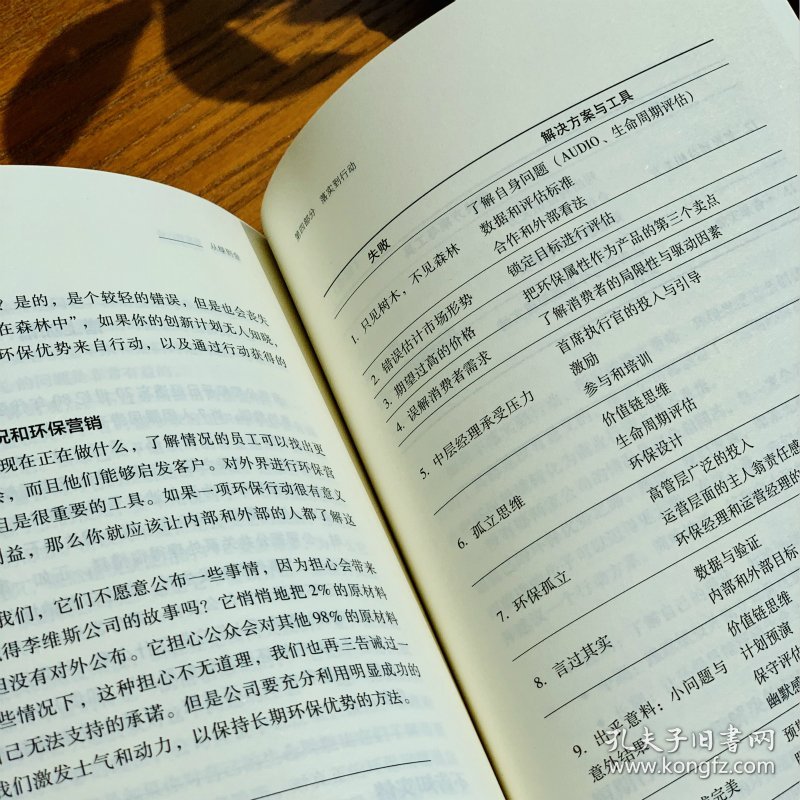 从绿到金
？是的，是个较轻的错误，但是也会丧失
在森林中”，如果你的创新计划无人知晓，
环保优势来自行动，以及通过行动获得的
况和环保营销
现在正在做什么，了解情况的员工可以找出更
，而且他们能够启发客户。对外界进行环保营
且是很重要的工具。如果一项环保行动很有意义
利益，那么你就应该让内部和外部的人都了解这
我们，它们不愿意公布一些事情，因为担心会带来
得李维斯公司的故事吗？它悄悄地把2%的原材料
但没有对外公布。它担心公众会对其他98%的原材料
些情况下，这种担心不无道理，我们也再三告诫过一
己无法支持的承诺。但是公司要充分利用明显成功的
我们激发士气和动力，以保持长期环保优势的方法。
第四部分 落实到行动
失败 解决方案与工具
1. 只见树木，不见森林 了解自身问题（AUDIO、生命周期评估）
数据和评估标准
合作和外部看法
2. 错误估计市场形势 锁定目标进行评估
3. 期望过高的价格 把环保属性作为产品的第三个卖点
4. 误解消费者需求 了解消费者的局限性与驱动因素
5. 中层经理承受压力 首席执行官的投入与引导
激励
参与和培训
6. 孤立思维 价值链思维
生命周期评估
环保设计
7. 环保孤立 高管层广泛的投入
运营层面的主人翁责任感
环保经理和运营经理的
8. 言过其实 数据与验证
内部和外部目标
9. 出乎意料：小问题与 价值链思维
意外结果 计划预演
保守评估
幽默感
求完美
孔夫子旧书网
www.kongfz.com